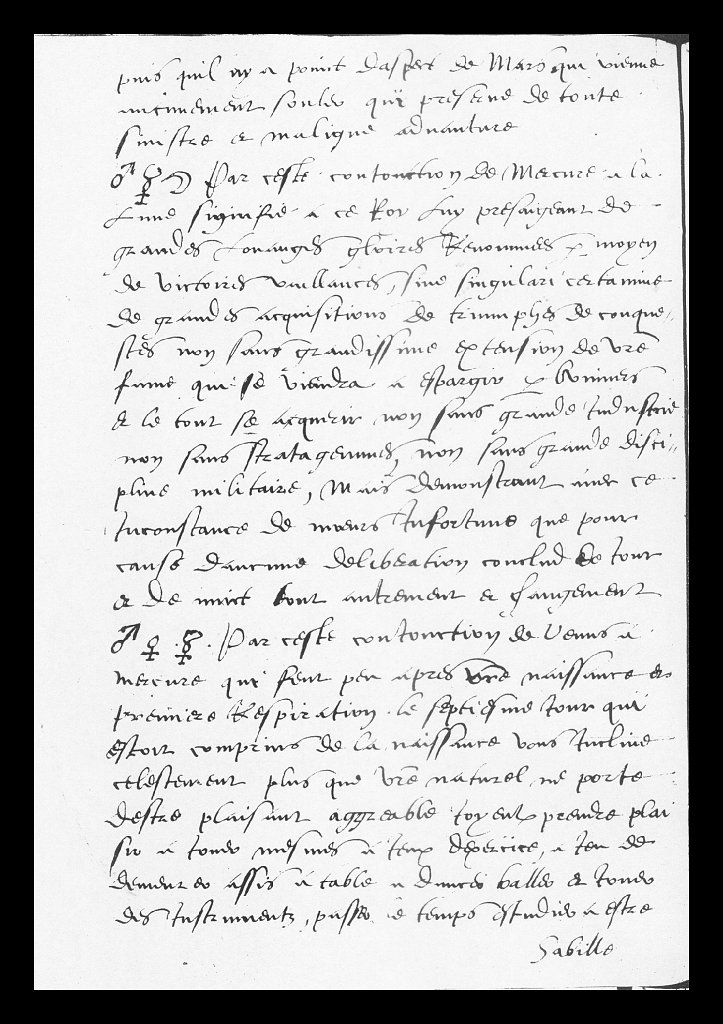 puis quil ny a poinct daspect de Mars qui vienne
aucunement souler qui preserve de toute
sinistre et maligne advanture
♂ ☿ ☽ Par ceste conionction de Mercure a la
Lune signifie a ce Roy luy presaigeant de
grandes Louanges gloires Renommees p moyen
de victoires vaillances, sine singulari certamine
de grandes acquisitions de triumphes de conque-
stes non sans grandissime extension de vre
fame qui se viendra a espargir p Univers
et le tout se acquerir non sans grande Industrie
non sans stratagemmes, non sans grande disci-
pline militaire, Mais demonstrant avec ce
Inconstance de moeurs Infortune que pour
cause daucune deliberation conclud de Jour
et de nuict tout autrement et changement
♂ ♀ ☿. Par ceste conionction de Venus a
Mercure qui feut peu apres vre naissance et
premiere Respiration le septiesme Jour qui
estoit comprins de la naissance vous Incline
celestement plus que vre naturel ne porte
destre plaisant aggreable Joyeux prendre plai
sir a touer mesmes a Jeux dexercice, a Jeu de
demeurer assis a table a dances baller et Jouer
des Instrumentz, passer le temps estudier a estre
Sabille